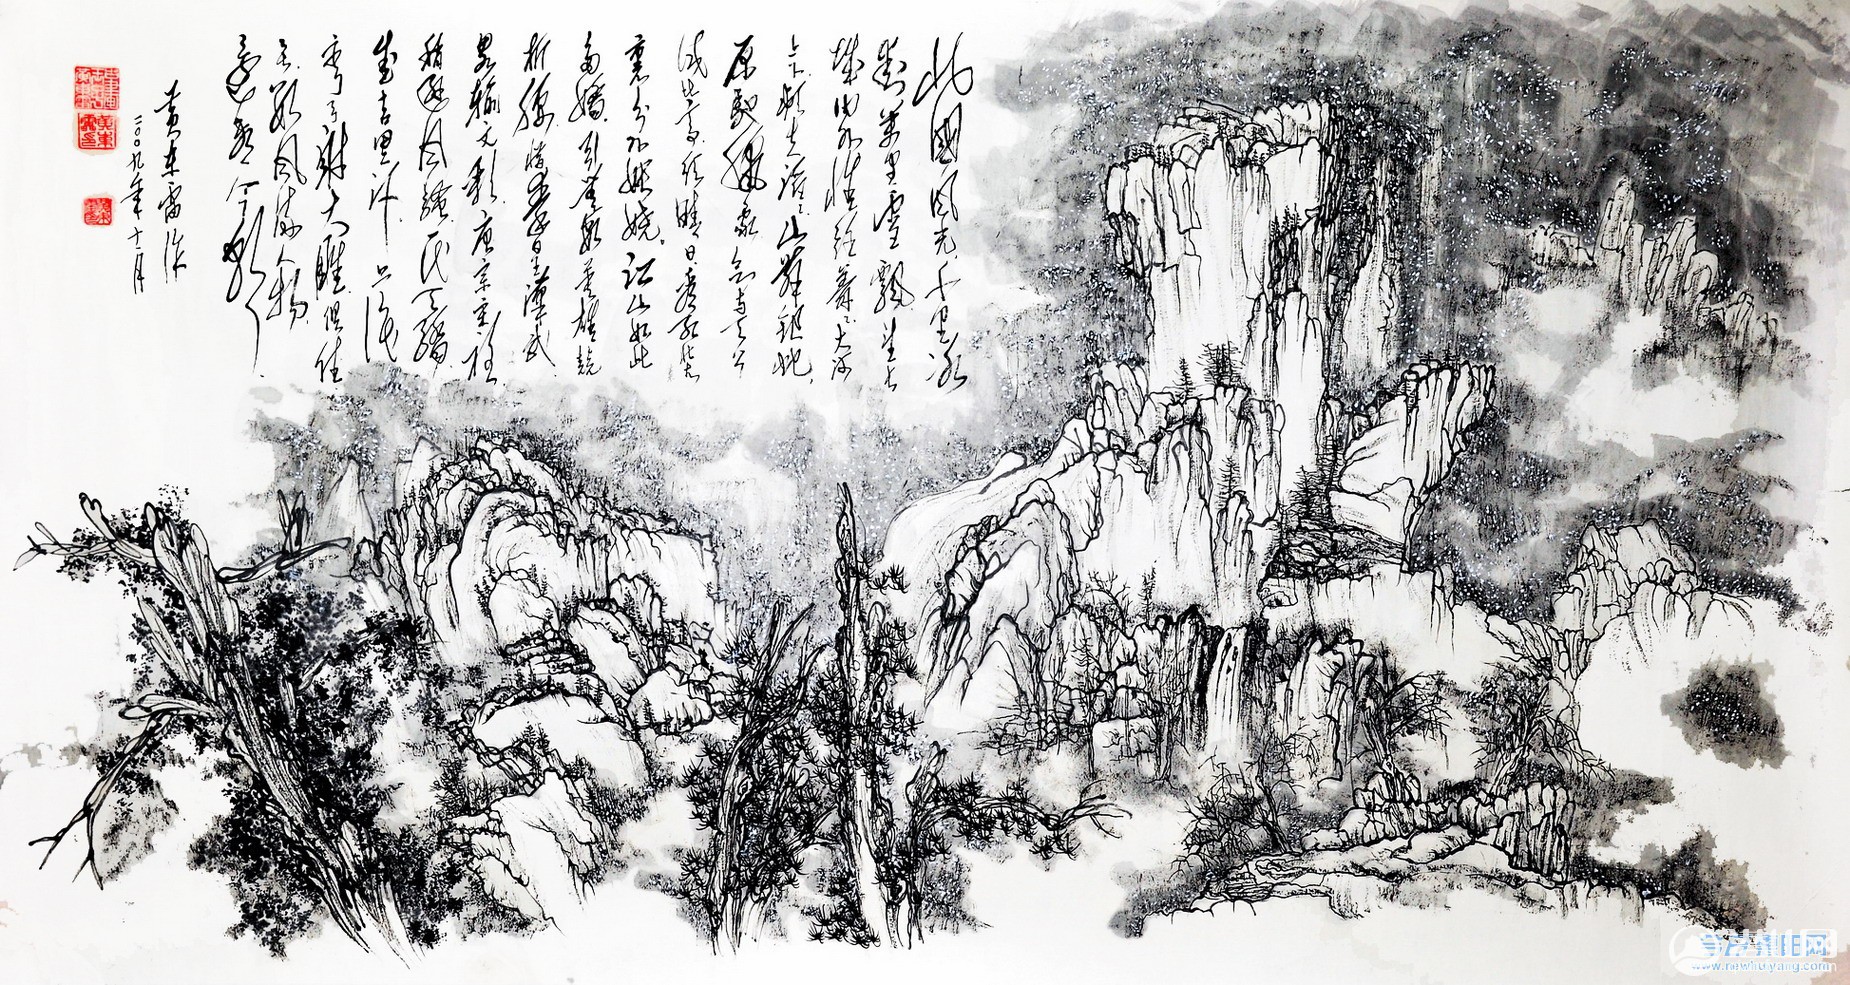 北國风光千里冰
封萬里雪飘望长
城内外惟余莽々大河
上下顿失滔々山舞银蛇
原驰蠟象欲与天公
试比高须晴日看红装素
裹分外妖娆江山如此
多嬌引無数英雄競
折腰惜秦皇漢武
略輸文彩唐宗宋祖
稍逊风骚一代天骄
成吉思汗只识
弯弓射大雕俱往
矣数风流人物
还看今朝
黄东雷作
二〇〇九年十二月
www.newhuiyang.com